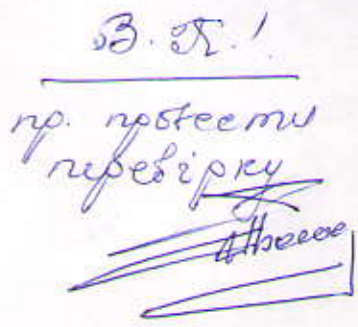 В. П.!
пр. провести
перевірку